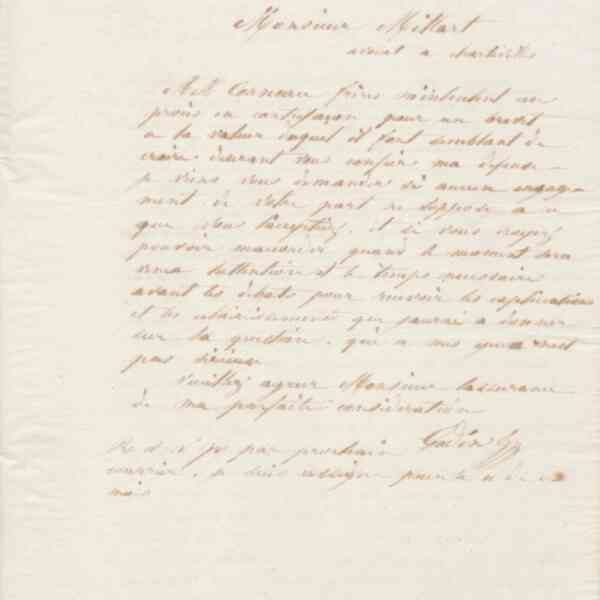 Monsieur Millart
avoué a charleville
MM Corneau frères m'intentent un
procès en contrefaçon pour un brevet
a la valeur duquel il font semblant de
croire désirant vous confier ma défense
je viens vous demander si aucun engage-
ment de votre part ne soppose a ce
que vous l'acceptiez, et si vous croyez
pouvoir m'accorder quand le moment sera
venu l'attention et le temps nécessaire
avant les débats pour recevoir les explications
et les éclaircissements que jaurai a donner
sur la question, qui a mes yeux n'est
pas sérieuse
Veuillez agréer Monsieur lassurance
de ma parfaite considération
Godin
R par prochain
courrier, je suis assigné pour le de ce
mois